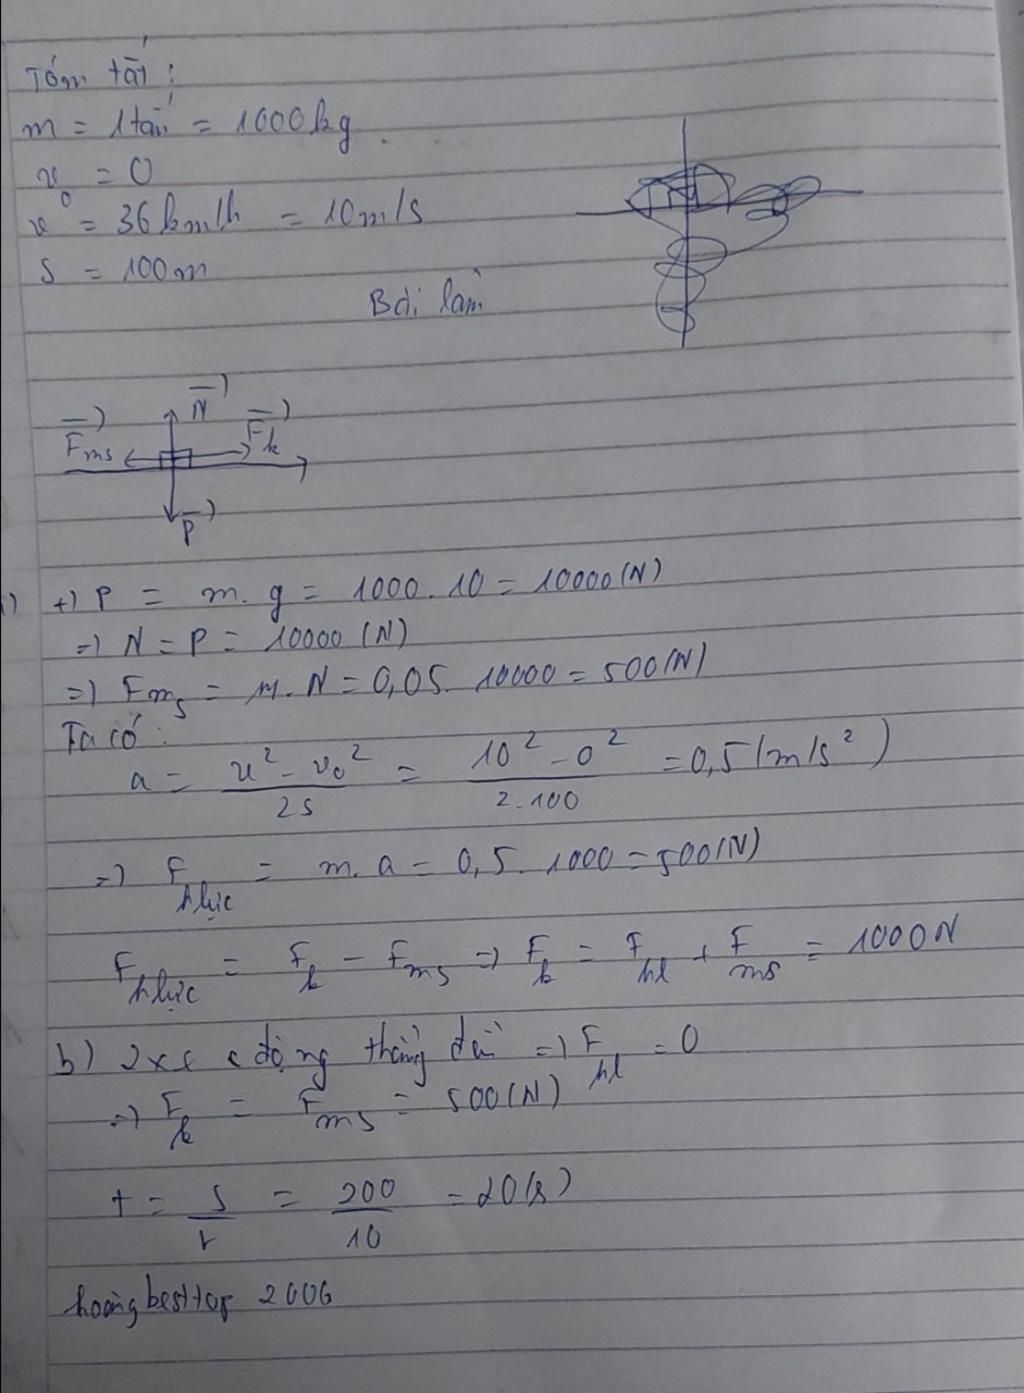 Tóm tắt:
m = 1 tấn = 1000kg
v₀ = 0
v = 36km/h = 10m/s
s = 100m
Bài làm
N
Fms
Fk
P
+) P = m.g = 1000.10 = 10000(N)
=) N = P = 10000(N)
=) Fms = μ.N = 0,05.10000 = 500(N)
Ta có:
a = v² - v₀² / 2s = 10² - 0² / 2.100 = 0,5(m/s²)
=) Fhlực = m.a = 0,5.1000 = 500(N)
Fhlực = Fk - Fms =) Fk = Fhl + Fms = 1000N
b) xe c động thẳng đều =) Fhl = 0
=) Fk = Fms = 500(N)
t = s / v = 200 / 10 = 20(s)
hoangbesttop 2006